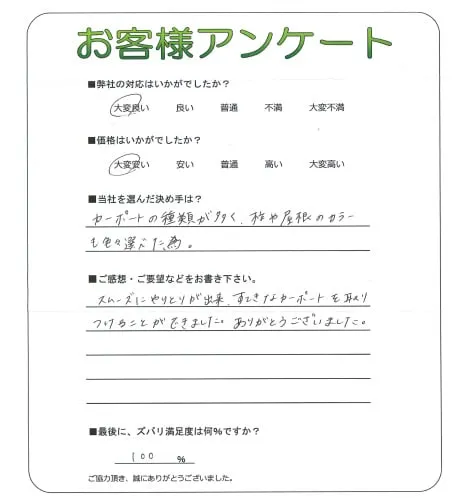 お客様アンケート
■弊社の対応はいかがでしたか？
大変良い 良い 普通 不満 大変不満
■価格はいかがでしたか？
大変安い 安い 普通 高い 大変高い
■当社を選んだ決め手は？
カーポートの種類が多く、柱や屋根のカラー
も色々選べた為。
■ご感想・ご要望などをお書き下さい。
スムーズにやりとりが出来、すてきなカーポートを取り
つけることができました。ありがとうございました。
■最後に、ズバリ満足度は何％ですか？
100 ％
ご協力頂き、誠にありがとうございました。